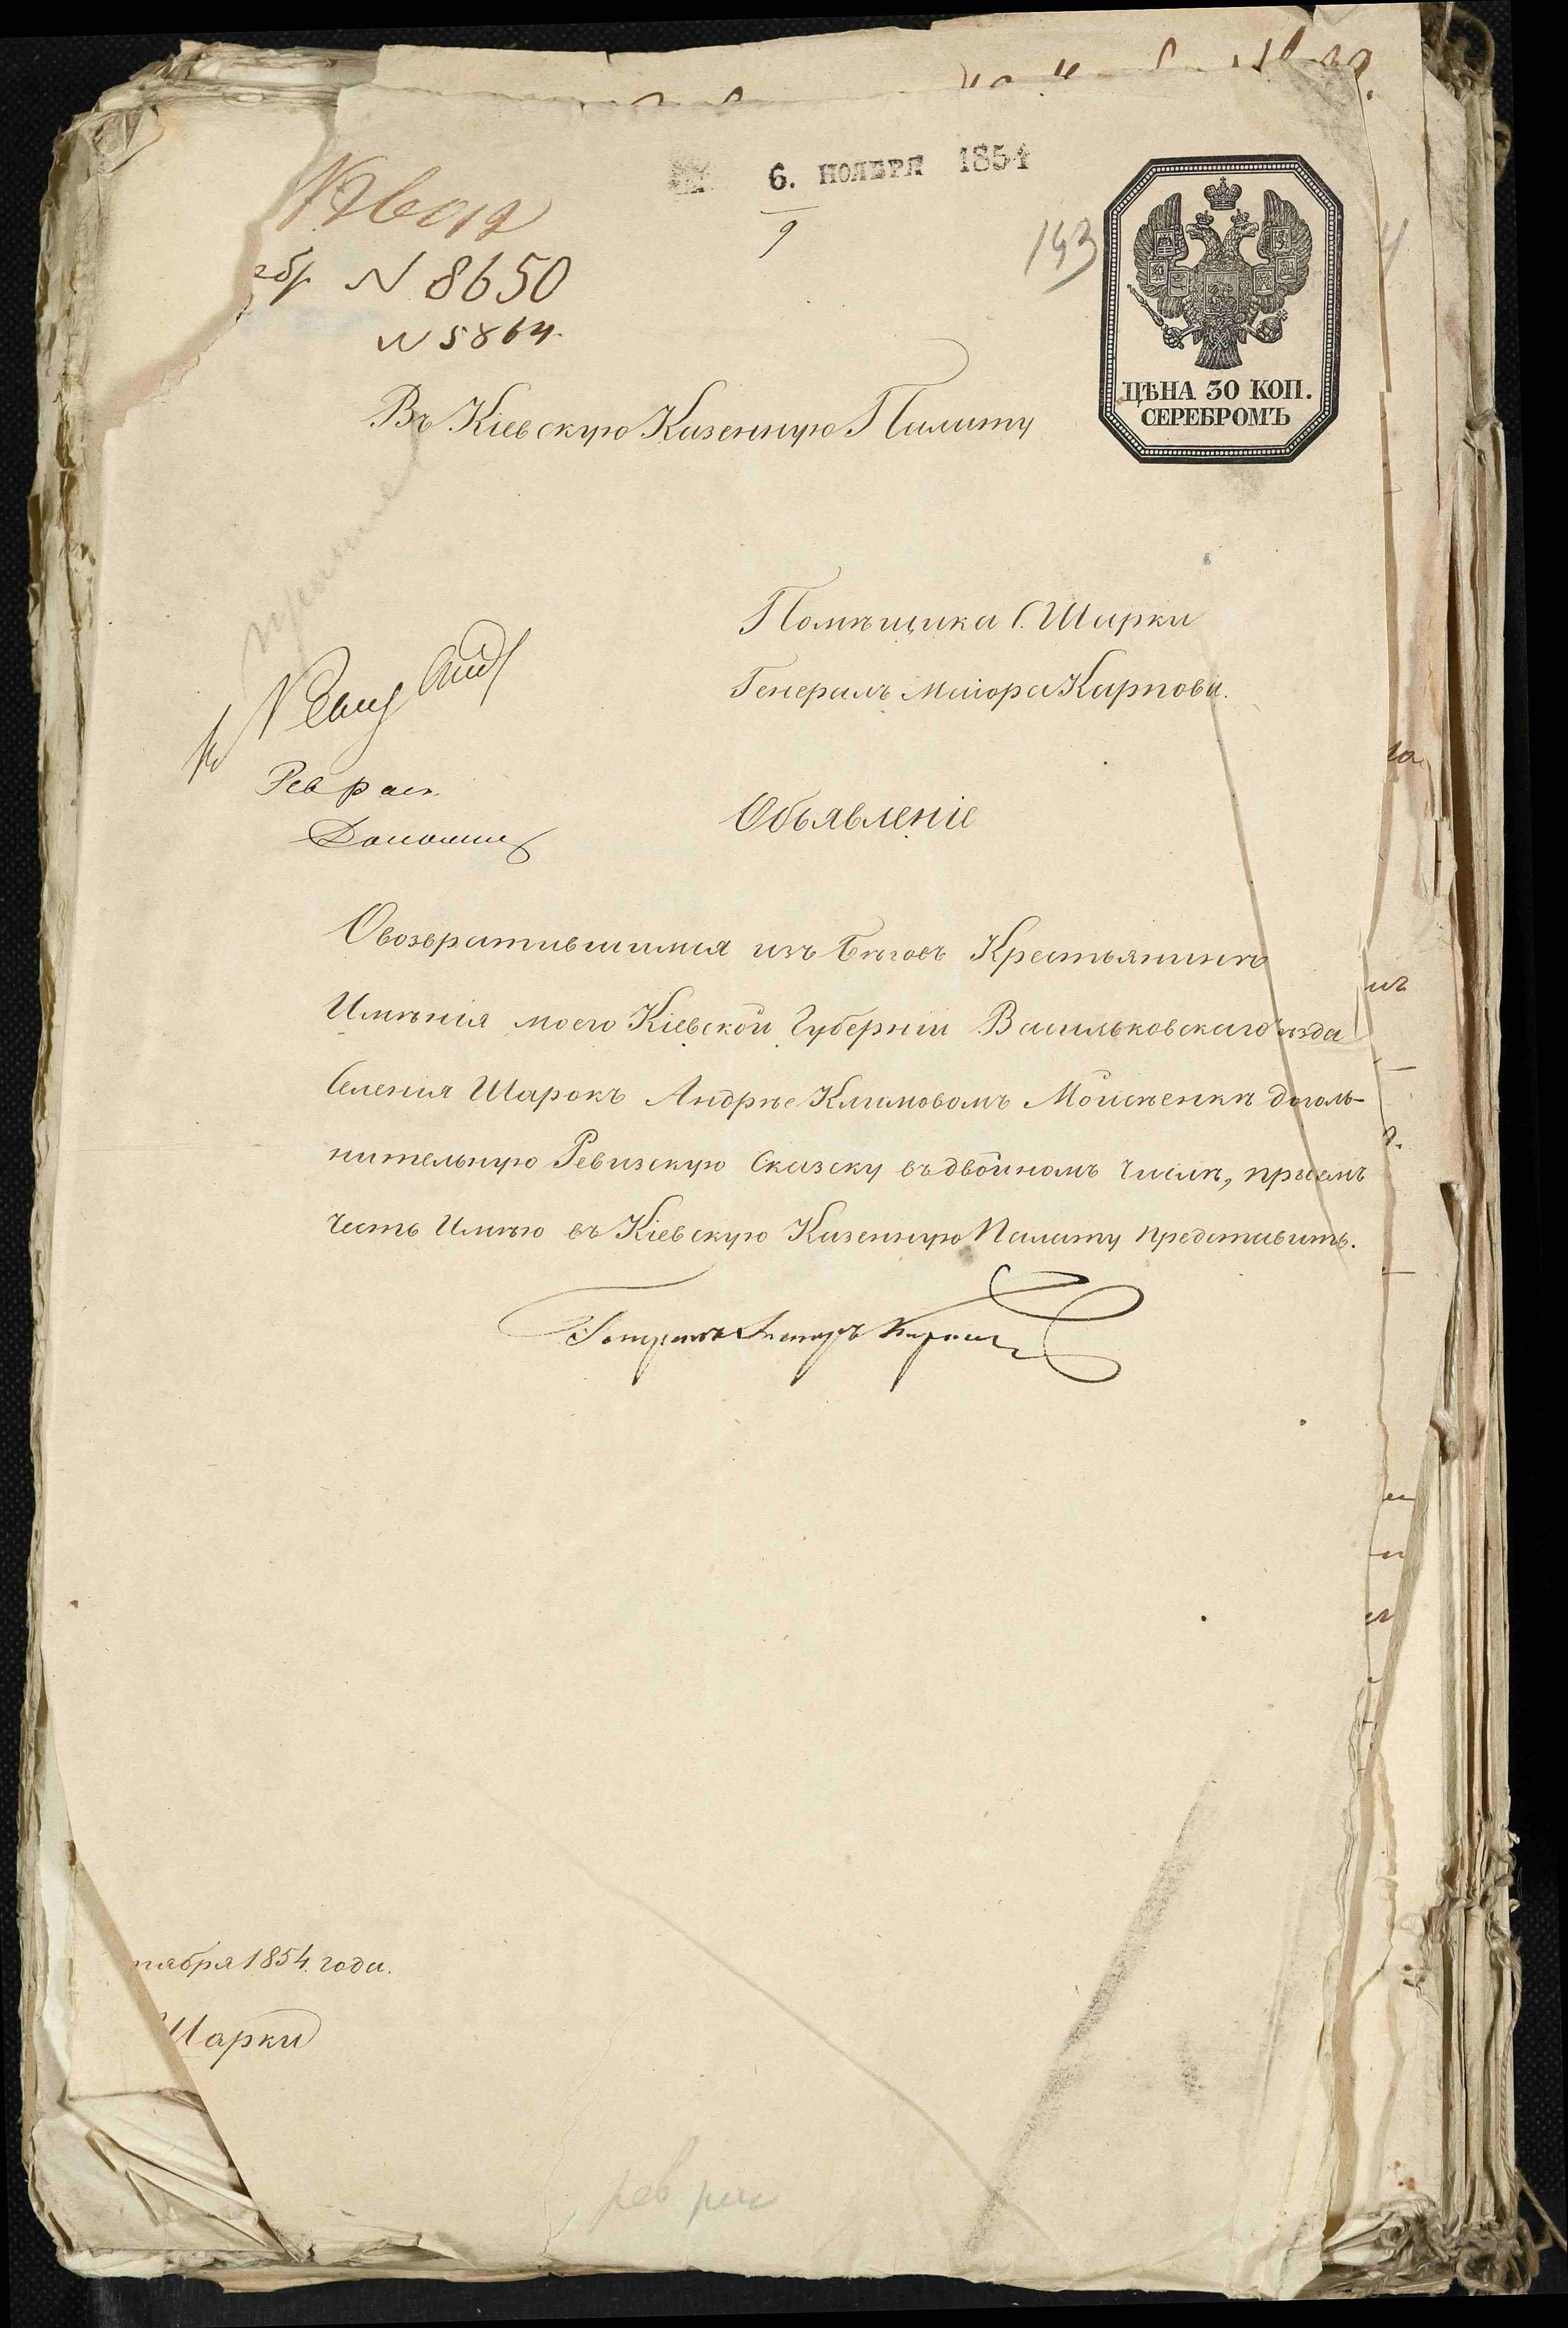 6. НОЯБРЯ 1854
9
143
N 8650
N 5864.
ЦѢНА 30 КОП.
СЕРЕБРОМЪ
Въ Кіевскую Казенную Палату
Помѣщика С. Шарки
Генералъ Маіора Карпова.
Рев рает.
Объявленіе
Овозвратившимся изъ Бѣговъ Крестьянинѣ
Имѣнія моего Кіевской Губерніи Васильковскаго уѣзда
Селенія Шарокъ Андрѣе Климовомъ Моисѣенкѣ дополь-
нительную Ревизскую Сказку въ двойномъ Числѣ, при семъ
Честь Имѣю въ Кіевскую Казенную Палату представить.
Генералъ Маіоръ Карповъ
тября 1854 года.
Шарки
рев рас